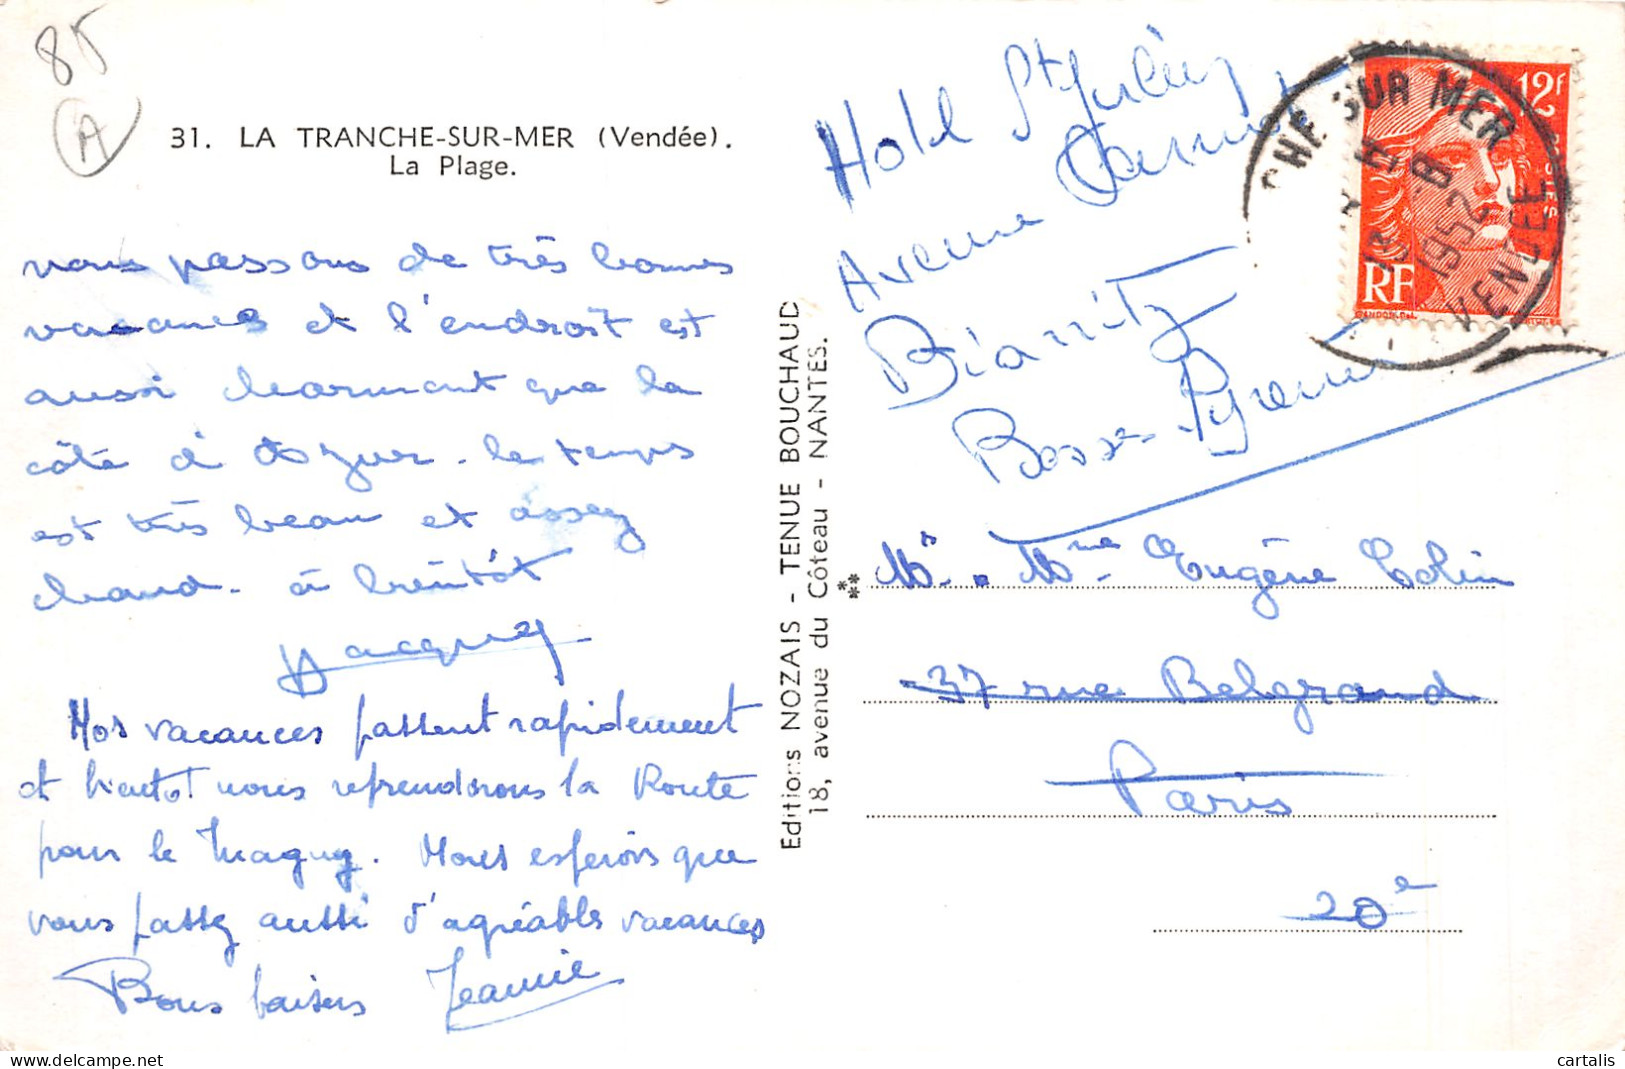 85
A
31. LA TRANCHE-SUR-MER (Vendée).
La Plage.
nous passons de très bonnes
vacances et l'endroit est
aussi charmant que la
côte d'Azur. le temps
est très beau et assez
chaud. à bientôt
Jacques
Nos vacances passent rapidement
et bientot nous reprendrons la Route
pour le Maquy. Nous esperons que
vous passez aussi d'agréables vacances
Bons baisers Jeannie
Editions NOZAIS - TENUE BOUCHAUD
18, avenue du Côteau - NANTES.
Hotel St Julien
Avenue Carnot
Biarritz
Basses-Pyrenees
CHE SUR MER
1952
VENDEE
12F
POSTES
RF
GANDON.DEL.
Mr. Mme Eugène Colin
37 rue Belgrand
Paris
20e
cartalis